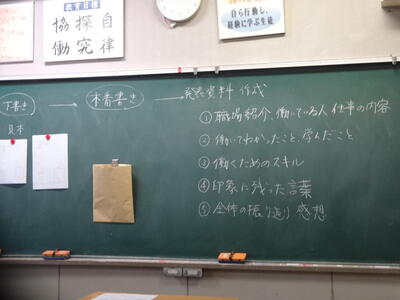 教育目標
自律
探究
協働
自ら行動し、
経験に学ぶ生徒
下書き → 本番書き → 発表資料 作成
見本
① 職場紹介、働いている人 仕事の内容
② 働いてわかったこと、学んだこと
③ 働くためのスキル
④ 印象に残った言葉
⑤ 全体の振り返り 感想